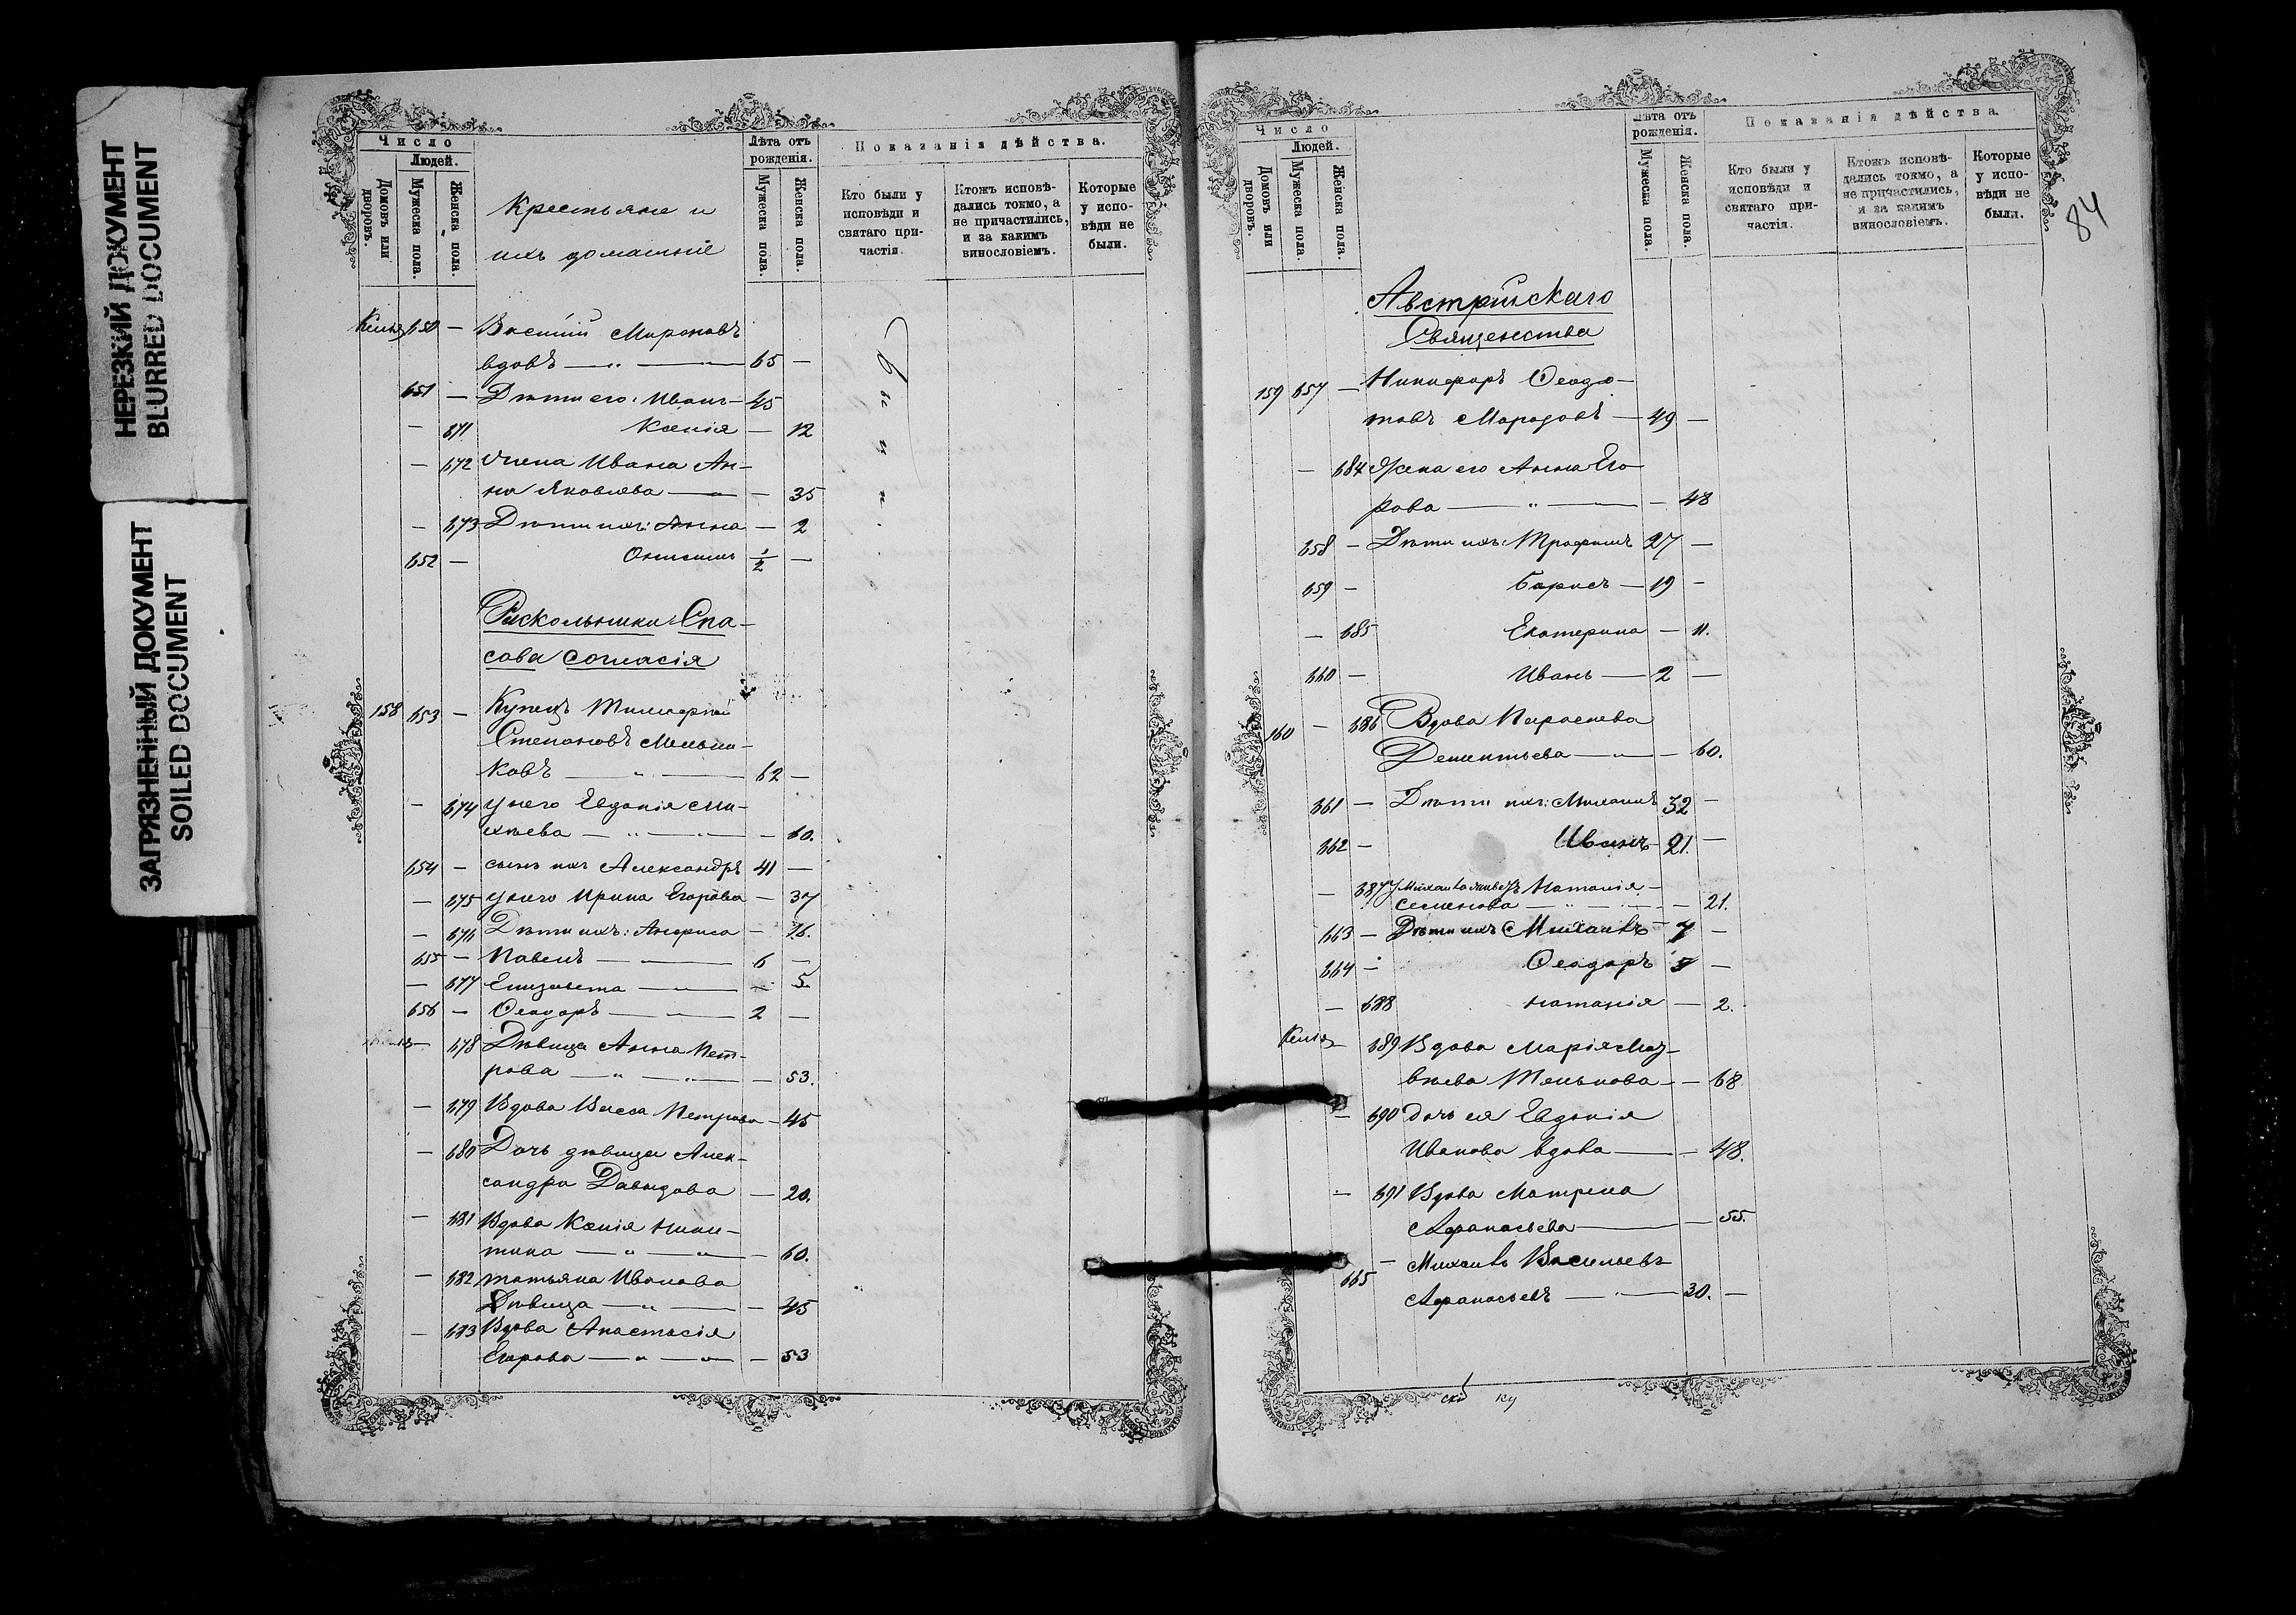 НЕРЕЗКИЙ ДОКУМЕНТ
BLURRED DOCUMENT
ЗАГРЯЗНЕННЫЙ ДОКУМЕНТ
SOILED DOCUMENT
Число
Людей.
Домовъ или дворовъ.
Мужеска пола.
Женска пола.
Крестьяне и
ихъ домашніе
Лѣта отъ рожденія.
Мужеска пола.
Женска пола.
Показанія дѣйства.
Кто были у исповѣди и святаго причастія.
Ктожъ исповѣдались токмо, а не причастились, и за какимъ винословіемъ.
Которые у исповѣди не были.
Келья 650 —
Мироновъ
вдовъ — „ — 65 —
651 — Дѣти его: Иванъ — 45
— 671 Ксенія — 12
— 672 Жена Ивана Ан-
на Яковлева — „ — 35
— 673 Дѣти ихъ: Анна — 2
652 — Онисимъ 1/2 —
были
Раскольники Спа-
сова согласія
158 653 — Купецъ Тимофей
Степановъ Мельни-
ковъ — „ — 62 —
— 674 У него Евдокія Ми-
хѣева — „ — „ — 60.
654 — сынъ ихъ Александръ 41 —
— 675 У него Ирина Егорова — 37
— 676 Дѣти ихъ: Анфиса — 16.
655 — Павелъ — 6 —
— 677 Елизавета — „ — 5
656 — Ѳеодоръ — „ — 2 —
— 678 Дѣвица Анна Пет-
рова — „ — „ — 53.
— 679 Вдова Васса Петрова — 45
— 680 Дочь дѣвица Алек-
сандра Давыдова — 20.
— 681 Вдова Ксенія Ники-
тина — „ — „ — 60.
— 682 Татьяна Иванова
Дѣвица — „ — 45
— 683 Вдова Анастасія
Егорова — „ — „ — 53
84
Число
Людей.
Домовъ или дворовъ.
Мужеска пола.
Женска пола.
Лѣта отъ рожденія.
Мужеска пола.
Женска пола.
Показанія дѣйства.
Кто были у исповѣди и святаго причастія.
Ктожъ исповѣдались токмо, а не причастились, и за какимъ винословіемъ.
Которые у исповѣди не были.
Австрійскаго
Священства
159 657 — Никифоръ Ѳеодо-
товъ Морозовъ — 49 —
— 684 Жена его Анна Его-
рова — „ — 48
658 — Дѣти ихъ: Трофимъ 27 —
659 — Борисъ — 19 —
— 685 Екатерина — 11.
660 — Иванъ — 2 —
160 — 686 Вдова Параскева
Дементьева — „ — 60.
661 — Дѣти ихъ: Михаилъ 32 —
662 — Иванъ — 21. —
— 687 У Михаила Наталія —
Семенова — „ — 21.
663 — Дѣти ихъ Михаилъ — 7 —
664 — Ѳеодоръ 5 —
— 688 Наталія — 2.
Келья — 689 Вдова Марія Мат-
вѣева — 68
— 690 дочь ея Евдокія
Иванова вдова — 48.
— 691 Вдова Матрена
Афанасьева — 55.
665 — Михаилъ Васильевъ
Афанасьевъ — 30. —